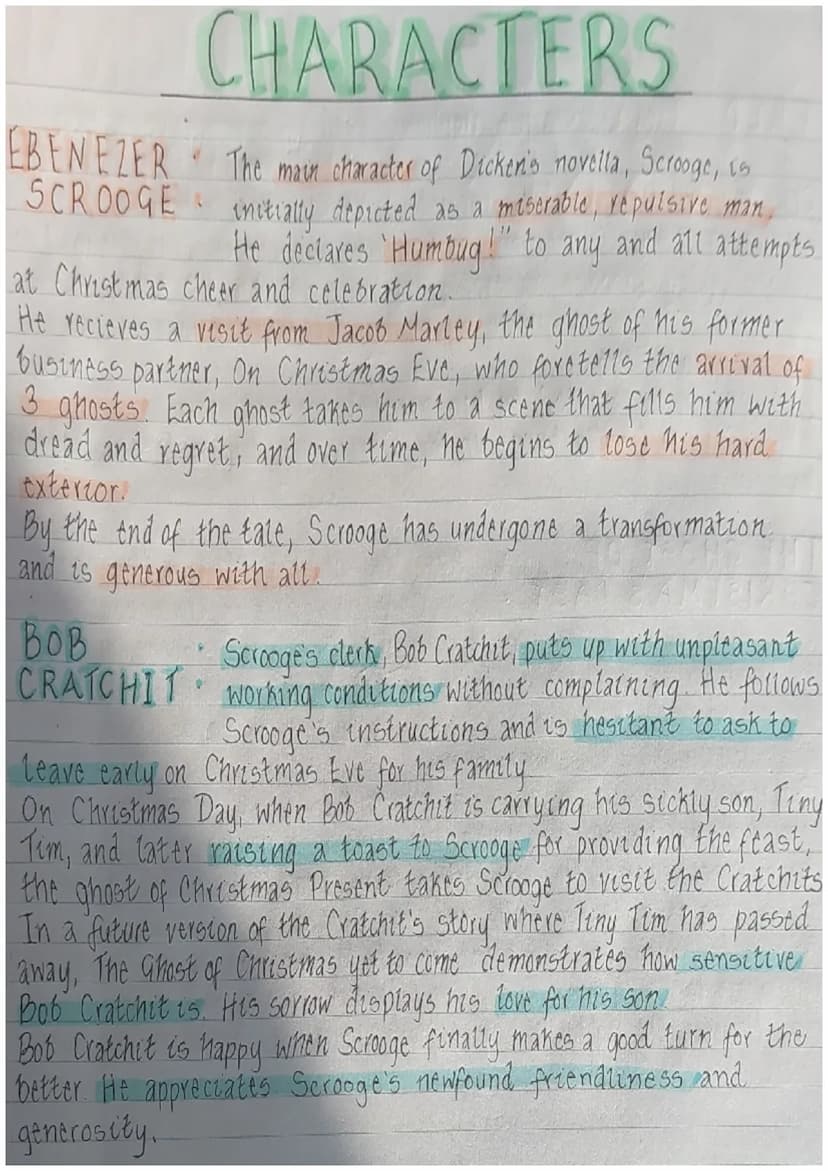 CHARACTERS
EBENEZER : The main character of Dicken's novella, Scrooge, is
SCROOGE : initially depicted as a miserable, repulsive man.
He declares 'Humbug!" to any and all attempts
at Christmas cheer and celebration.
He recieves a visit from Jacob Marley, the ghost of his former
business partner, On Christmas Eve, who foretells the arrival of
3 ghosts. Each ghost takes him to a scene that fills him with
dread and regret, and over time, he begins to lose his hard
exterior.
By the end of the tale, Scrooge has undergone a transformation
and is generous with all.
BOB : Scrooge's clerk, Bob Cratchit, puts up with unpleasant
CRATCHIT : working conditions without complaining. He follows
Scrooge's instructions and is hesitant to ask to
leave early on Christmas Eve for his family
On Christmas Day, when Bob Cratchit is carrying his sickly son, Tiny
Tim, and later raising a toast to Scrooge for providing the feast,
the ghost of Christmas Present takes Scrooge to visit the Cratchits
In a future version of the Cratchit's story where Tiny Tim has passed
away, The Ghost of Christmas yet to come demonstrates how sensitive
Bob Cratchit is. His sorrow displays his love for his son.
Bob Cratchit is happy when Scrooge finally makes a good turn for the
better. He appreciates Scrooge's newfound friendliness and
generosity.